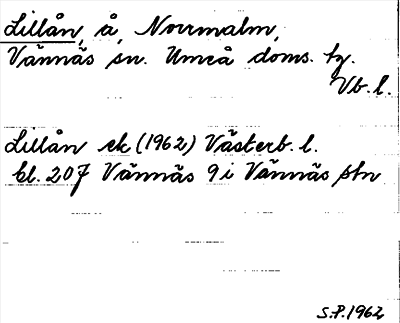 Lillån, å, Norrmalm,
Vännäs sn. Umeå doms. tg.
Vb. l.
Lillån ek (1962) Västerb. l.
bl. 207 Vännäs 9 i Vännäs stn
S.P. 1962